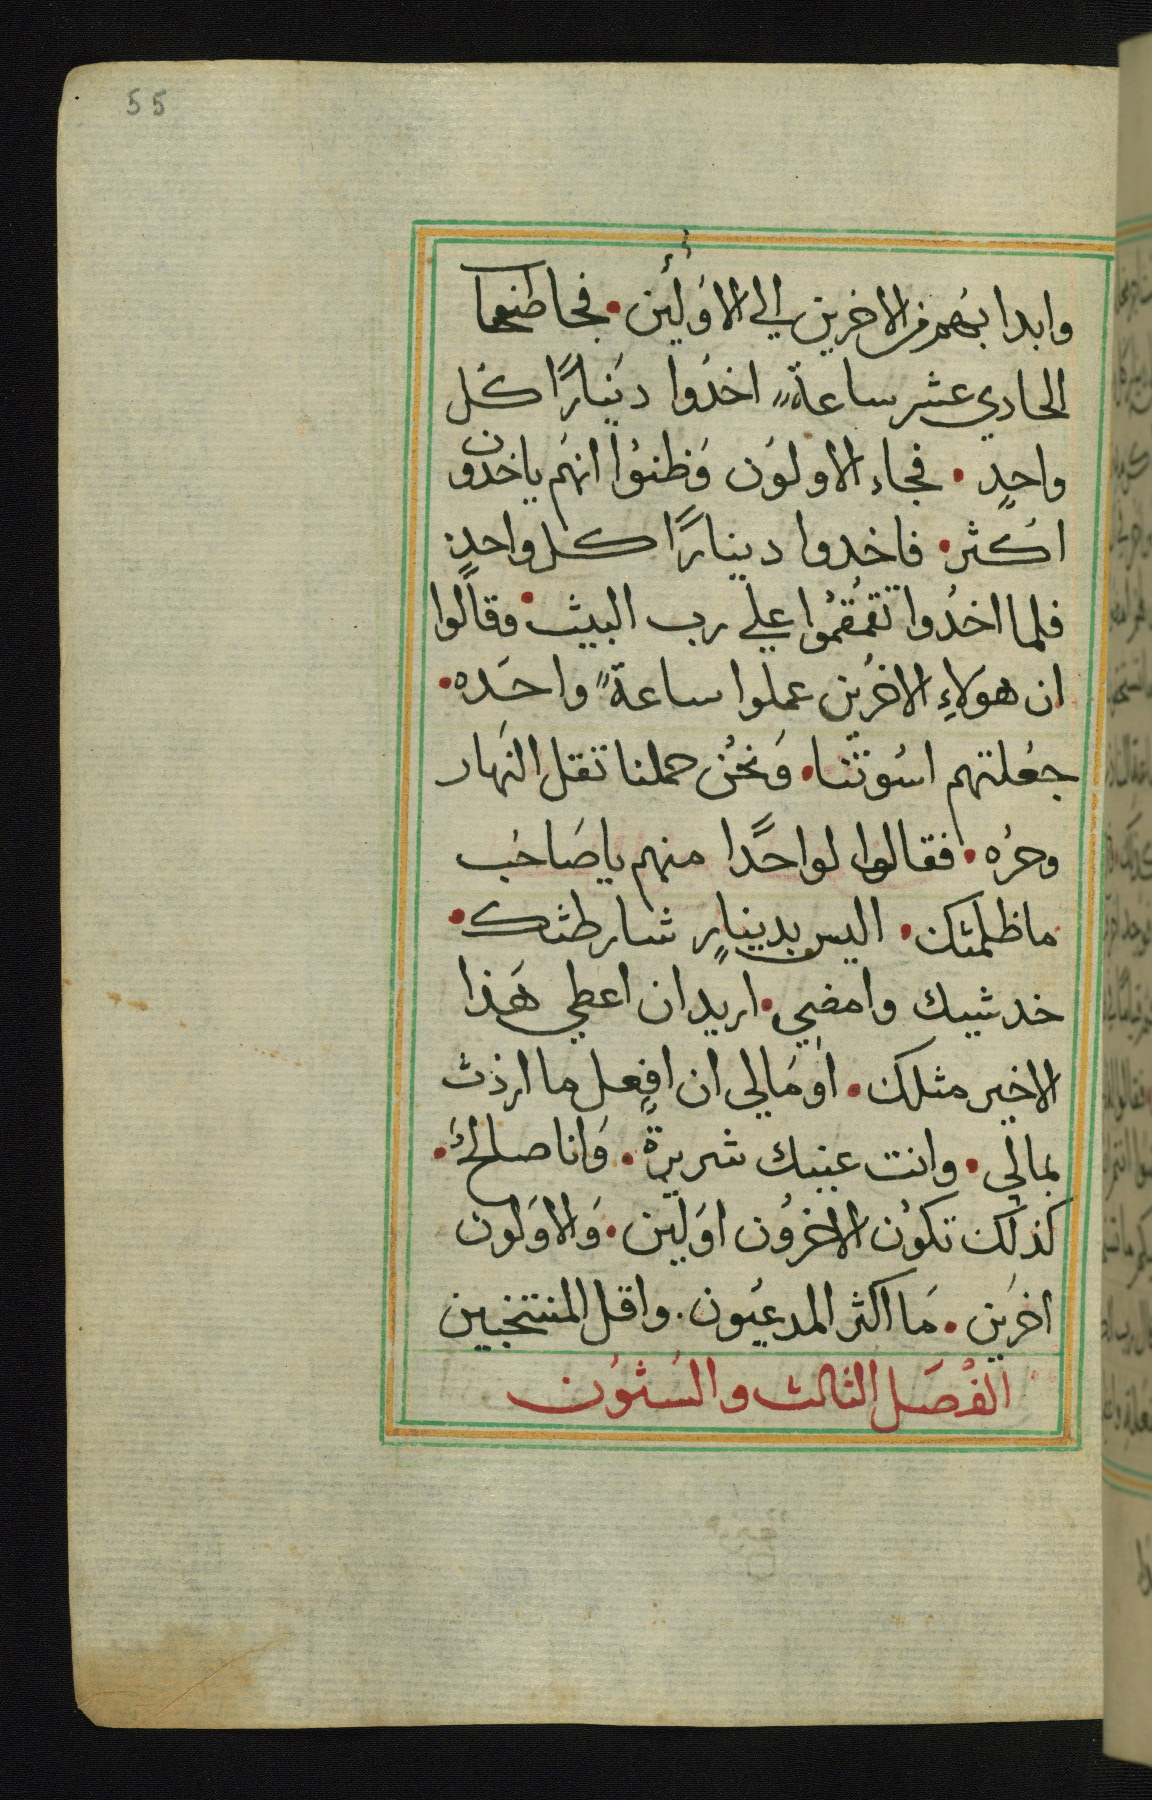 55
وابدا بهم من الاخرين الي الاولين • فجا
الحادي عشر ساعة اخدوا دينارًا كل
واحدٍ • فجاء الاولون وظنوا انهم ياخدون
اكثر • فاخدوا دينارًا كل واحدٍ
فلما اخدوا تقمقموا علي رب البيث • وقالوا
ان هولاءِ الاخرين عملوا ساعةً واحده •
جعلتهم اسوتنا • ونحن حملنا تقل النهار
وحره • فقالوا لواحدًا منهم يا صاحب
ما ظلمثك • اليس بدينارٍ شارطثك •
خد شييك وامضي • اريد ان اعطي هذا
الاخير مثلك • او مالي ان افعل ما اردث
بمالي • وانت عينيك شريرة • وانا صالح •
كذلك تكون الاخرون اولين • والاولون
اخرين • ما اكثر المدعيون • واقل المنتخبين
الفصل الثالث والسثون